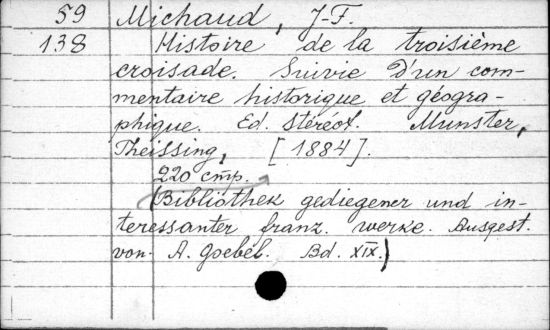 59 Michaud, J-F.
138 Histoire de la troisième
croisade. Suivie d'un com-
mentaire historique et géogra-
phique. Ed. stéréot. Munster,
Theissing, [1884].
220 стр.
(Bibliothek gediegener und in-
teressanter franz. werke. Ausgest.
von A. Goebel. Bd. XIX.)